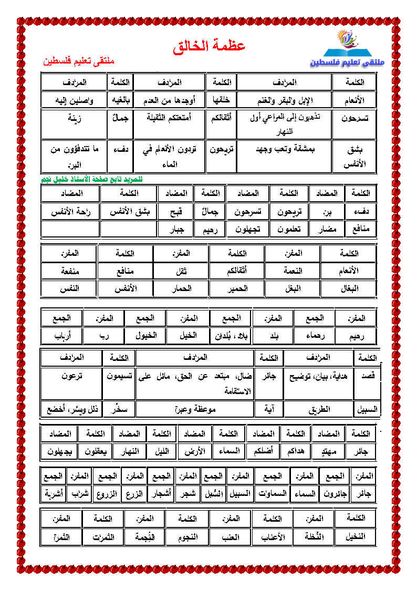 عظمة الخالق
ملتقى تعليم فلسطين
ملتقى تعليم فلسطين
الكلمة المرادف الكلمة المرادف الكلمة المرادف
الأنعام الإبل والبقر والغنم خلقها أوجدها من العدم بالغيه واصلين إليه
تسرحون تذهبون إلى المراعي أول النهار أثقالكم أمتعتكم الثقيلة جمال زينة
بشق الأنفس بمشقة وتعب وجهد تريحون تردون الأنعام في الماء دفء ما تتدفؤون من البرد
للمزيد تابع صفحة الأستاذ خليل نجم
الكلمة المضاد الكلمة المضاد الكلمة المضاد الكلمة المضاد
دفء برد تريحون تسرحون جمال قبح بشق الأنفس راحة الأنفس
منافع مضار تعلمون تجهلون رحيم جبار
الكلمة المفرد الكلمة المفرد الكلمة المفرد
الأنعام النعمة أثقالكم ثقل منافع منفعة
البغال البغل الحمير الحمار الأنفس النفس
المفرد الجمع المفرد الجمع المفرد الجمع المفرد الجمع
رحيم رحماء بلد بلاد، بُلدان الخيل الخيول رب أرباب
الكلمة المرادف الكلمة المرادف الكلمة المرادف
قصد هداية، بيان، توضيح جائر ضال، مبتعد عن الحق، مائل على الاستقامة تسيمون ترعون
السبيل الطريق آية موعظة وعبرة سخّر ذلل ويسّر، أخضع
الكلمة المضاد الكلمة المضاد الكلمة المضاد الكلمة المضاد الكلمة المضاد
جائر مهتدٍ هداكم أضلكم السماء الأرض الليل النهار يعقلون يجهلون
المفرد الجمع المفرد الجمع المفرد الجمع المفرد الجمع المفرد الجمع المفرد الجمع
جائر جائرون السماء السماوات السبيل السُبل شجر أشجار الزرع الزروع شراب أشربة
الكلمة المفرد الكلمة المفرد الكلمة المفرد الكلمة المفرد
النخيل النخلة الأعناب العنب النجوم النجمة الثمرات الثمرة